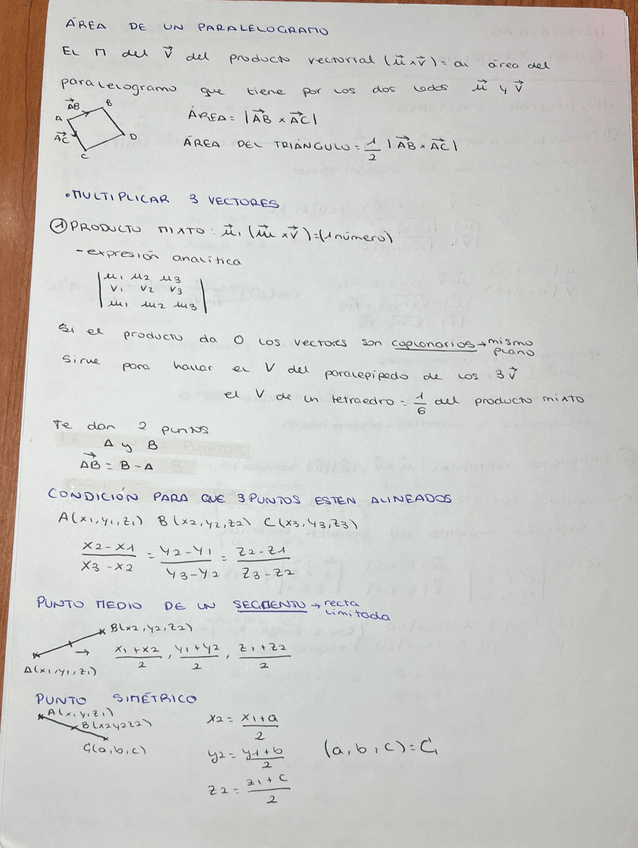 ÁREA DE UN PARALELOGRAMO
EL M del V⃗ del producto vectorial (u⃗ x v⃗) = al área del
paralelogramo que tiene por los dos lados u⃗ y v⃗
AB⃗ B
A ÁREA = |AB⃗ x AC⃗|
AC⃗ D
C ÁREA DEL TRIÁNGULO = 1/2 |AB⃗ x AC⃗|
• MULTIPLICAR 3 VECTORES
① PRODUCTO MIXTO: u⃗, (w⃗ x v⃗) = (1 número)
- expresión analítica
| u1 u2 u3 |
| v1 v2 v3 |
| w1 w2 w3 |
Si el producto da 0 los vectores son coplanarios → mismo plano
Sirve para hallar el V del paralepípedo de los 3 v⃗
el V de un tetraedro = 1/6 del producto mixto
Te dan 2 puntos
A y B
AB⃗ = B - A
CONDICIÓN PARA QUE 3 PUNTOS ESTEN ALINEADOS
A(x1,y1,z1) B(x2,y2,z2) C(x3,y3,z3)
x2-x1/x3-x2 = y2-y1/y3-y2 = z2-z1/z3-z2
PUNTO MEDIO DE UN SEGMENTO → recta limitada
B(x2,y2,z2)
→ x1+x2/2, y1+y2/2, z1+z2/2
A(x1,y1,z1)
PUNTO SIMÉTRICO
A(x,y,z1) x2 = x1+a/2
B(x2y2z2)
C(a,b,c) y2 = y1+b/2 (a,b,c) = C
z2 = z1+c/2